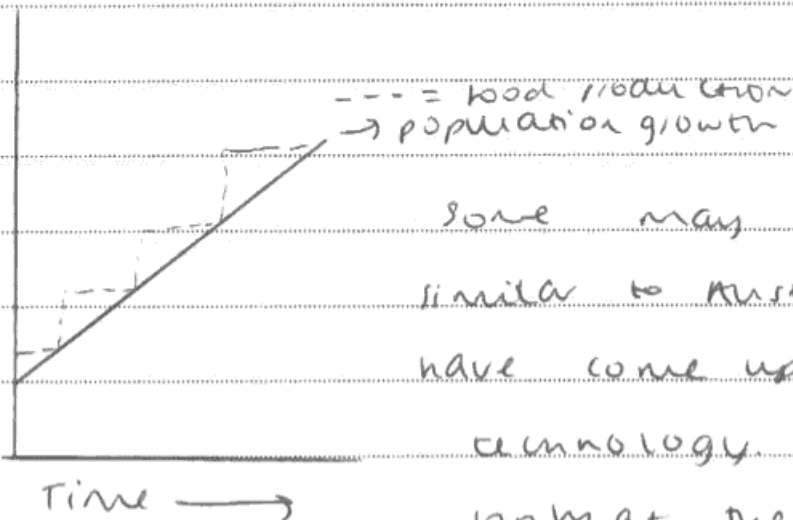 --- = food production
→ population growth
some may
similar to Aust
have come up
technology.
Time →